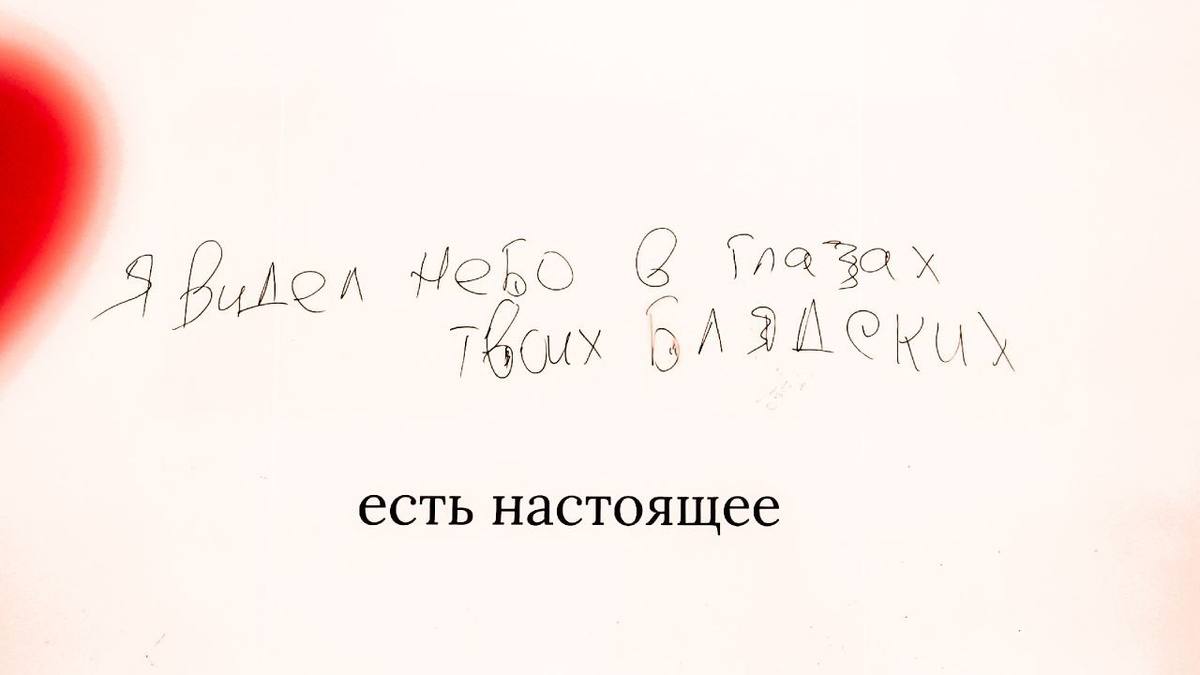 я видел небо в глазах
твоих блядских
есть настоящее